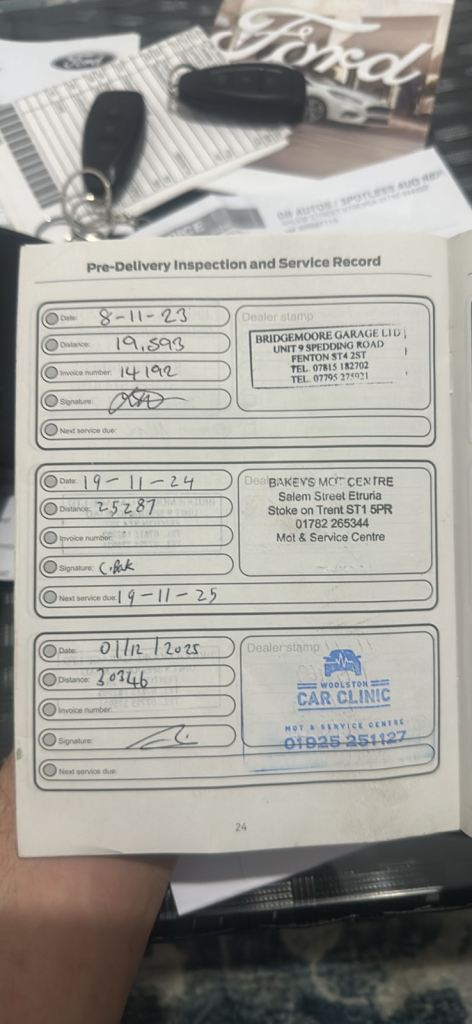 Ford
Ford
Pre-Delivery Inspection and Service Record
Date: 8-11-23
Distance: 19,593
Invoice number: 14192
Signature:
Next service due:
Dealer stamp
BRIDGEMOORE GARAGE LTD
UNIT 9 SPEDDING ROAD
FENTON ST4 2ST
TEL. 07815 182702
TEL. 07795 275921
Date: 19-11-24
Distance: 25287
Invoice number:
Signature: C.Bak
Next service due: 19-11-25
BAKEYS MOT CENTRE
Salem Street Etruria
Stoke on Trent ST1 5PR
01782 265344
Mot & Service Centre
Date: 01/12/2025
Distance: 30346
Invoice number:
Signature:
Next service due:
Dealer stamp
WOOLSTON
CAR CLINIC
MOT & SERVICE CENTRE
01925 251127
24